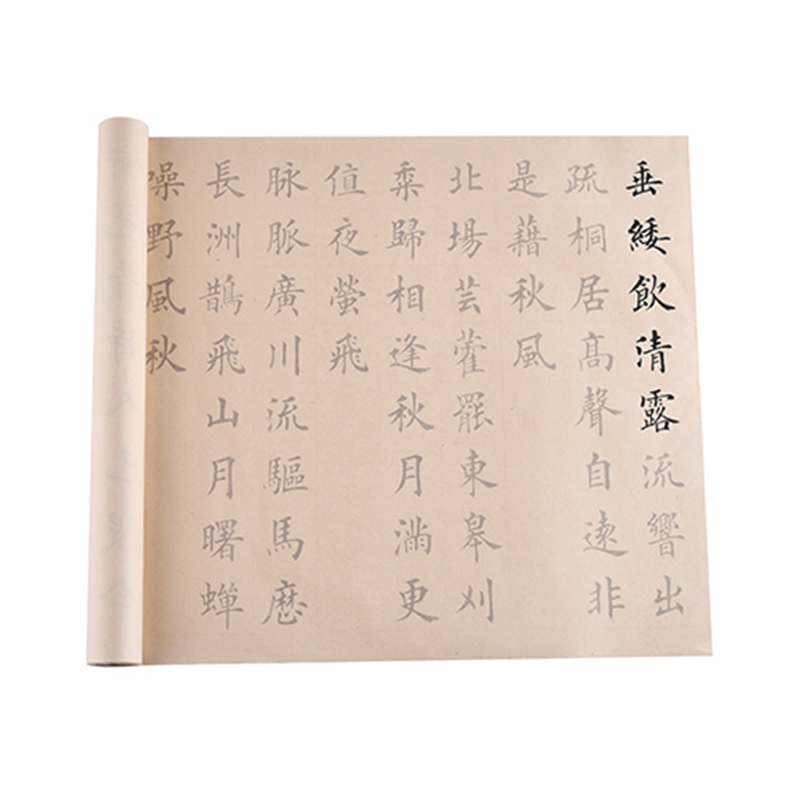 垂緌飲清露流響出
疏桐居高聲自遠非
是藉秋風
北場芸藿罷東皋刈
黍歸相逢秋月滿更
值夜螢飛
脉脈廣川流驅馬歷
長洲鵲飛山月曙蟬
噪野風秋